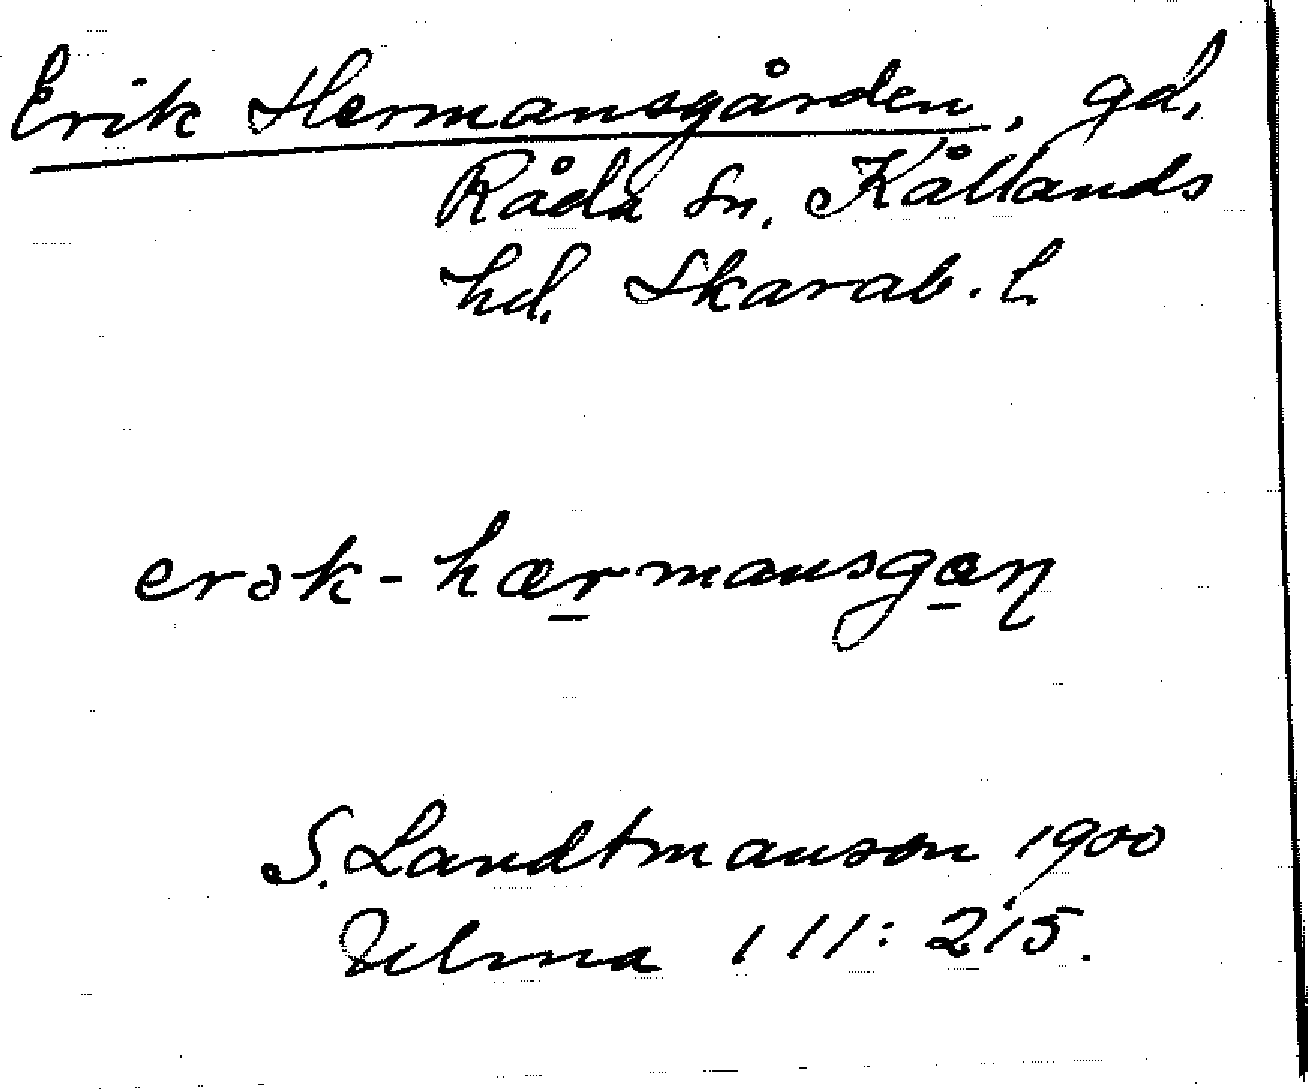 Erik Hermansgården, gd,
Råda sn. Kållands
hd. Skarab. l.
erək-hærmansgan
S. Landtmanson 1900
Ulma 111: 215.